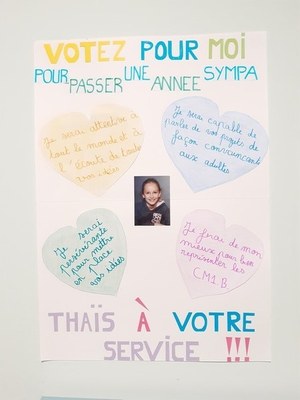 VOTEZ POUR MOI
POUR PASSER UNE ANNEE SYMPA
Je serai attentive à
tout le monde et à
l'écoute de toutes
vos idées
Je serai capable de
parler de vos projets de
façon convaincante
aux adultes
Je serai
persévérante
pour mettre
en place
vos idées
Je ferai de mon
mieux pour bien
représenter les
CM1 B
THAÏS À VOTRE
SERVICE !!!